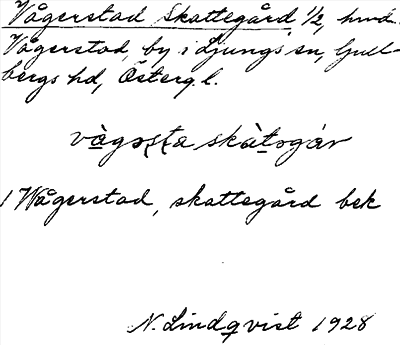 Vågerstad Skattegård, 1/2, hmd.
Vågerstad, by i Ljungs sn, Gull-
bergs hd, Österg. l.
skàtəgár
1 Wågerstad, skattegård bek
N. Lindqvist 1928